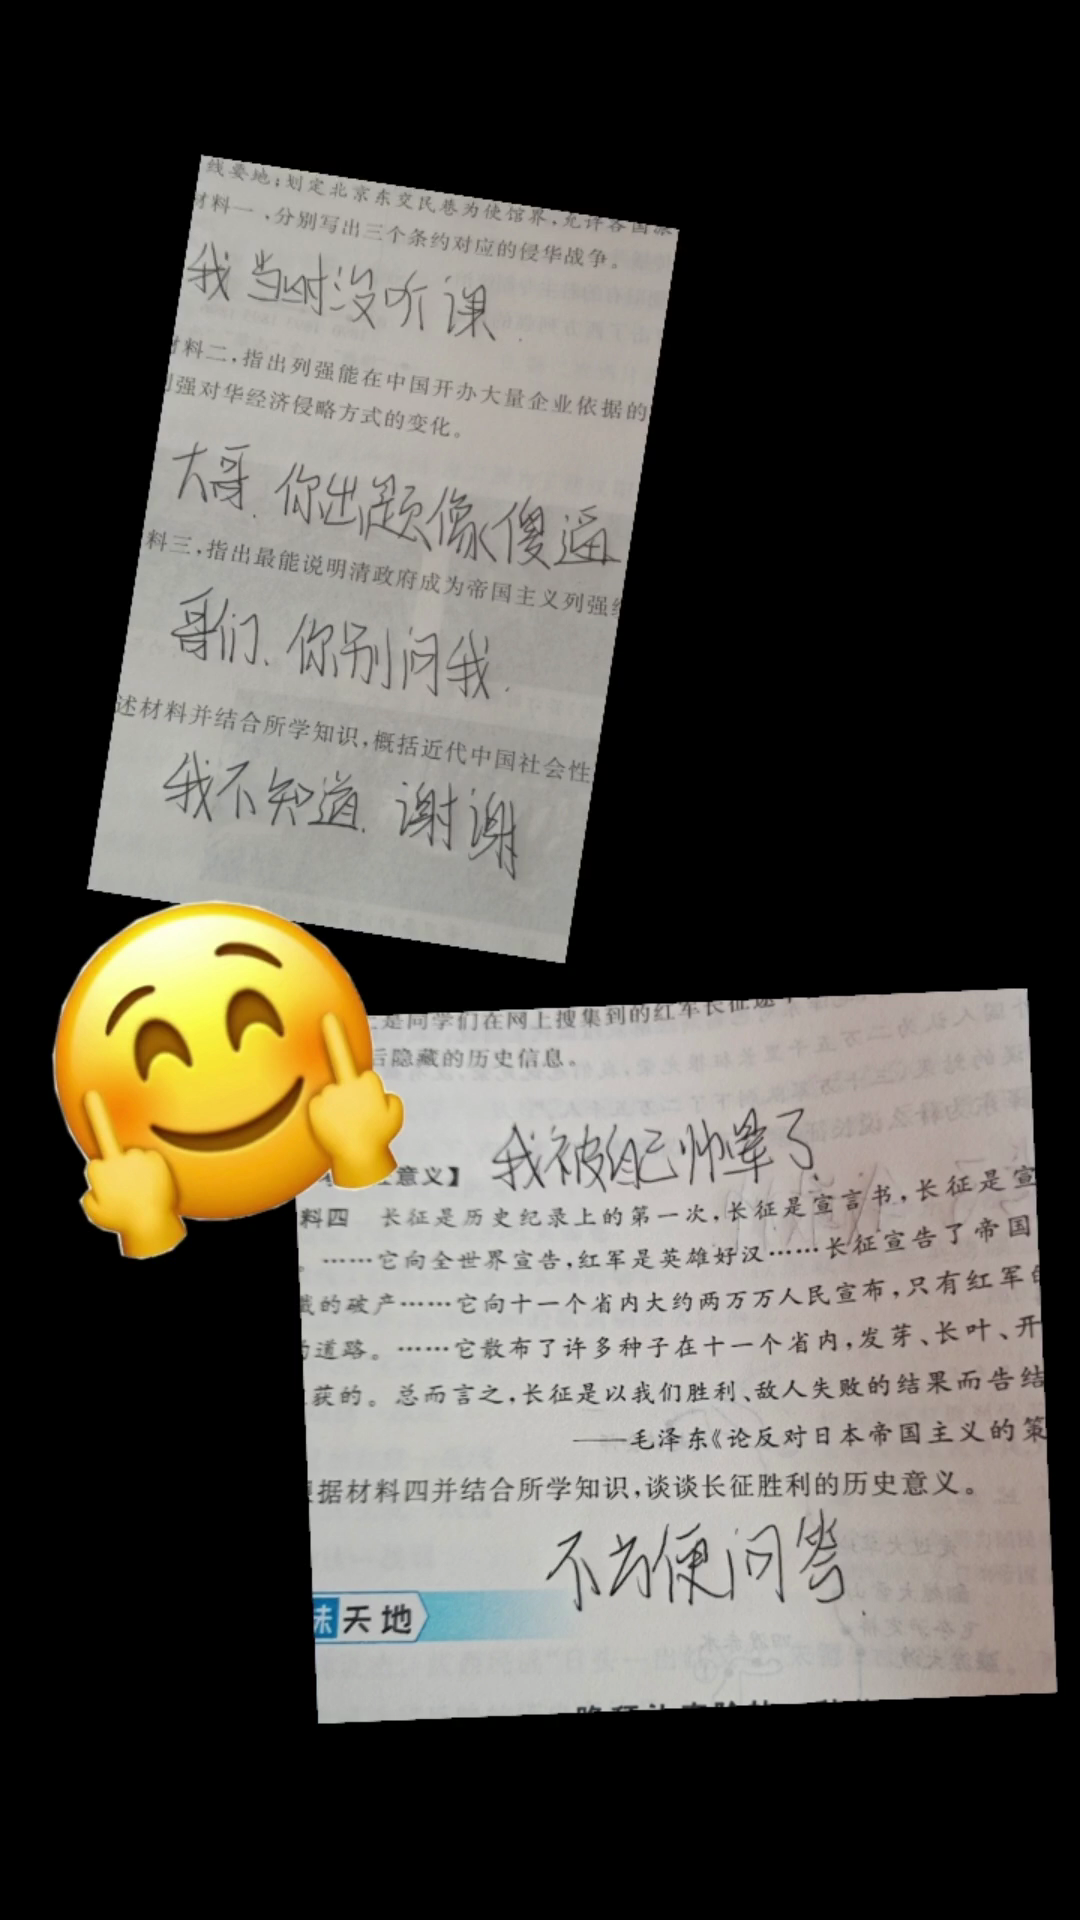 线要地；划定北京东交民巷为使馆界，允许各国派
材料一，分别写出三个条约对应的侵华战争。
我当时没听课.
材料二，指出列强能在中国开办大量企业依据的
列强对华经济侵略方式的变化。
大哥.你出题像傻逼
料三，指出最能说明清政府成为帝国主义列强统
哥们、你别问我.
述材料并结合所学知识，概括近代中国社会性
我不知道.谢谢
是同学们在网上搜集到的红军长征途中
后隐藏的历史信息。
意义】 我被自己帅晕了.
料四 长征是历史纪录上的第一次，长征是宣言书，长征是宣
。……它向全世界宣告，红军是英雄好汉……长征宣告了帝国
的破产……它向十一个省内大约两万万人民宣布，只有红军的
道路。……它散布了许多种子在十一个省内，发芽、长叶、开
获的。总而言之，长征是以我们胜利、敌人失败的结果而告结
——毛泽东《论反对日本帝国主义的策
根据材料四并结合所学知识，谈谈长征胜利的历史意义。
不方便问答.
味天地